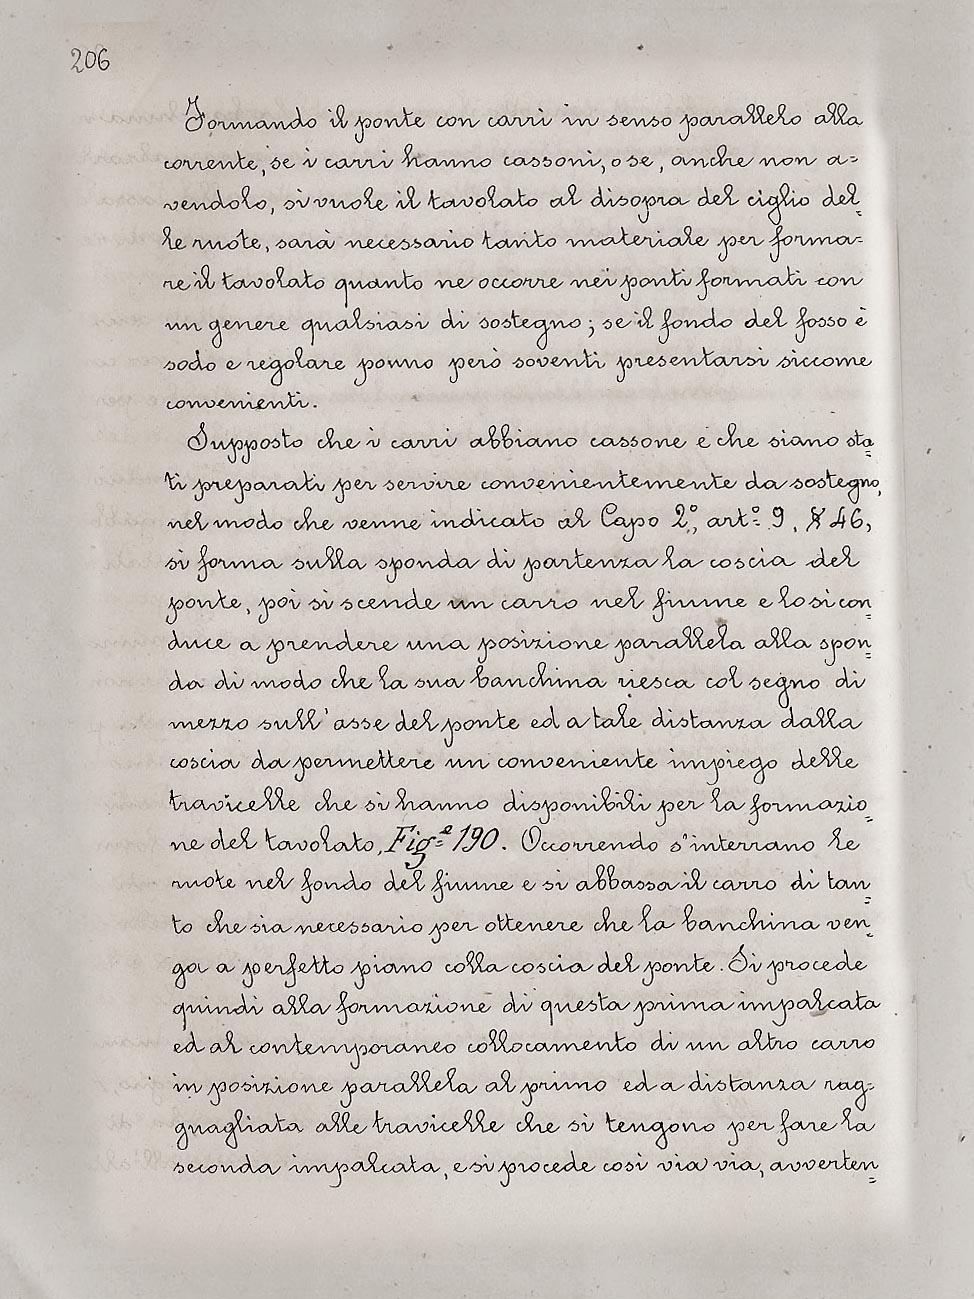 206
Formando il ponte con carri in senso parallelo alla
corrente, se i carri hanno cassoni, o se, anche non a=
vendolo, si vuole il tavolato al disopra del ciglio del=
le ruote, sarà necessario tanto materiale per forma=
re il tavolato quanto ne occorre nei ponti formati con
un genere qualsiasi di sostegno; se il fondo del fosso è
sodo e regolare ponno però soventi presentarsi siccome
convenienti.
Supposto che i carri abbiano cassone e che siano sta=
ti preparati per servire convenientemente da sostegno,
nel modo che venne indicato al Capo 2.º, art.º 9, § 46,
si forma sulla sponda di partenza la coscia del
ponte, poi si scende un carro nel fiume e lo si con=
duce a prendere una posizione parallela alla spon=
da di modo che la sua banchina riesca col segno di
mezzo sull'asse del ponte ed a tale distanza dalla
coscia da permettere un conveniente impiego delle
travicelle che si hanno disponibili per la formazio=
ne del tavolato, Fig.ª 190. Occorrendo s'interrano le
ruote nel fondo del fiume e si abbassa il carro di tan=
to che sia necessario per ottenere che la banchina ven=
ga a perfetto piano colla coscia del ponte. Si procede
quindi alla formazione di questa prima impalcata
ed al contemporaneo collocamento di un altro carro
in posizione parallela al primo ed a distanza rag=
guagliata alle travicelle che si tengono per fare la
seconda impalcata, e si procede così via via, avverten=